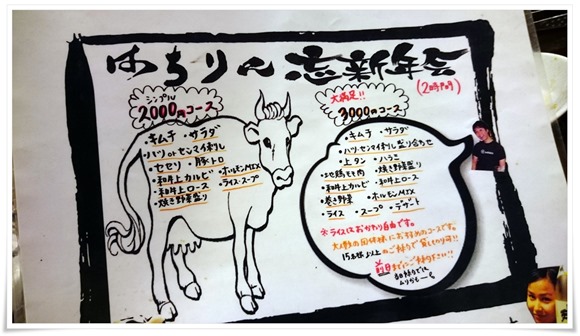 はちりん 忘新年会
(2時間)
シンプル
2000円コース
・キムチ ・サラダ
・ハツ or センマイ刺し
・セセリ ・豚トロ
・和牛上カルビ ・ホルモンMIX
・和牛上ロース ・ライス・スープ
・焼き野菜盛り
大満足!!
3000円コース
・キムチ ・サラダ
・ハツ・センマイ刺し盛り合わせ
・上タン ・ハラミ
・地鶏もも肉 ・焼き野菜盛り
・和牛上カルビ ・和牛上ロース
・巻き野菜 ・ホルモンMIX
・ライス ・スープ ・デザート
※ライスはおかわり自由です。
大人数の団体様にお勧めのコースです。
15名様より上のご予約で貸し切り可!!
前日までにご予約下さい!!